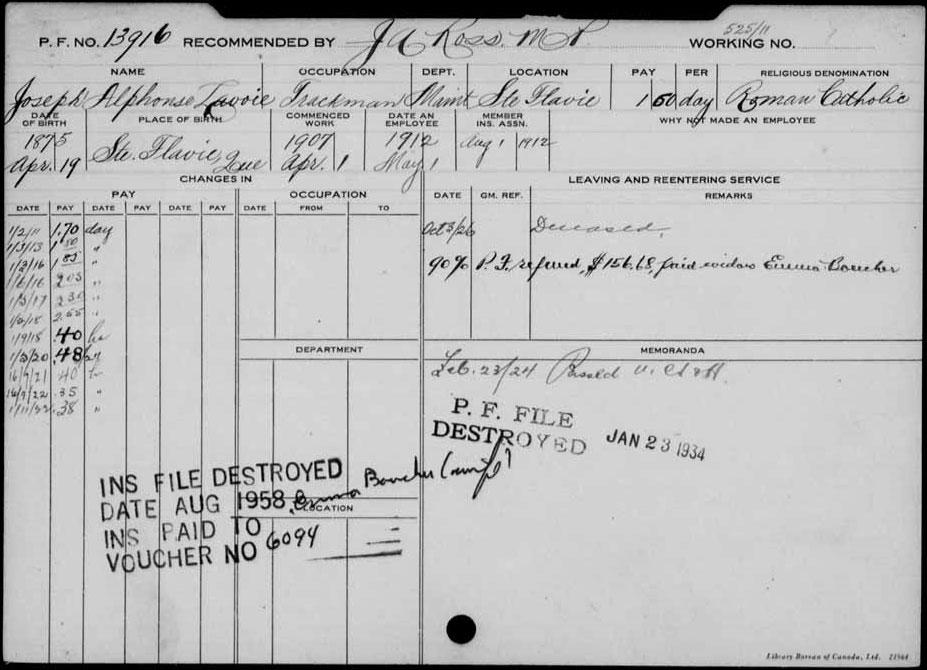 525/11
P. F. NO. 13916 RECOMMENDED BY J A Ross. M.P. WORKING NO.
NAME OCCUPATION DEPT. LOCATION PAY PER RELIGIOUS DENOMINATION
Joseph Alphonse Lavoie Trackman Maint Ste Flavie 1 50 day Roman Catholic
DATE OF BIRTH PLACE OF BIRTH COMMENCED WORK DATE AN EMPLOYEE MEMBER INS. ASSN. WHY NOT MADE AN EMPLOYEE
1875 Apr. 19 Ste. Flavie, Que 1907 Apr. 1 1912 May 1 Aug 1 1912
CHANGES IN LEAVING AND REENTERING SERVICE
PAY OCCUPATION DATE GM. REF. REMARKS
DATE PAY DATE PAY DATE PAY DATE FROM TO
1/2/11 1.70 day Oct 3/26 Deceased.
1/5/13 1 80 "
1/3/16 1 85 " 90% P. F. refund, $156.68, paid widow Emma Boucher
1/6/16 2 05 "
1/5/17 2 30 "
1/2/18 2.55 "
1/9/18 .40 hr
1/5/20 .48 hr
DEPARTMENT MEMORANDA
16/7/21 40 hr Feb. 23/24 Passed V. C & H.
16/7/22 .35 "
1/11/22 .38 "
P. F. FILE
DESTROYED JAN 23 1934
INS FILE DESTROYED
DATE AUG 1958 Emma Boucher (wife)
LOCATION
INS PAID TO
VOUCHER NO 6094
Library Bureau of Canada, Ltd. 21964